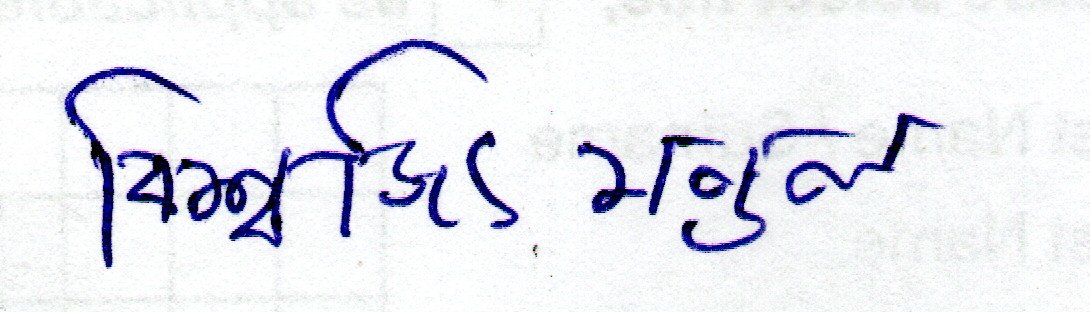 বিশ্বজিৎ মণ্ডল